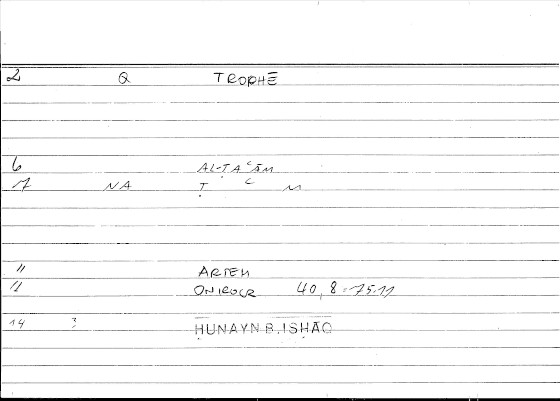 2 Q TROPHĒ
6 AL-ṬAʿĀM
7 NA Ṭ ʿ M
11 ARTEM
11 ONIROCR 40,8-75.11
14 3 ḤUNAYN B. ISḤĀQ